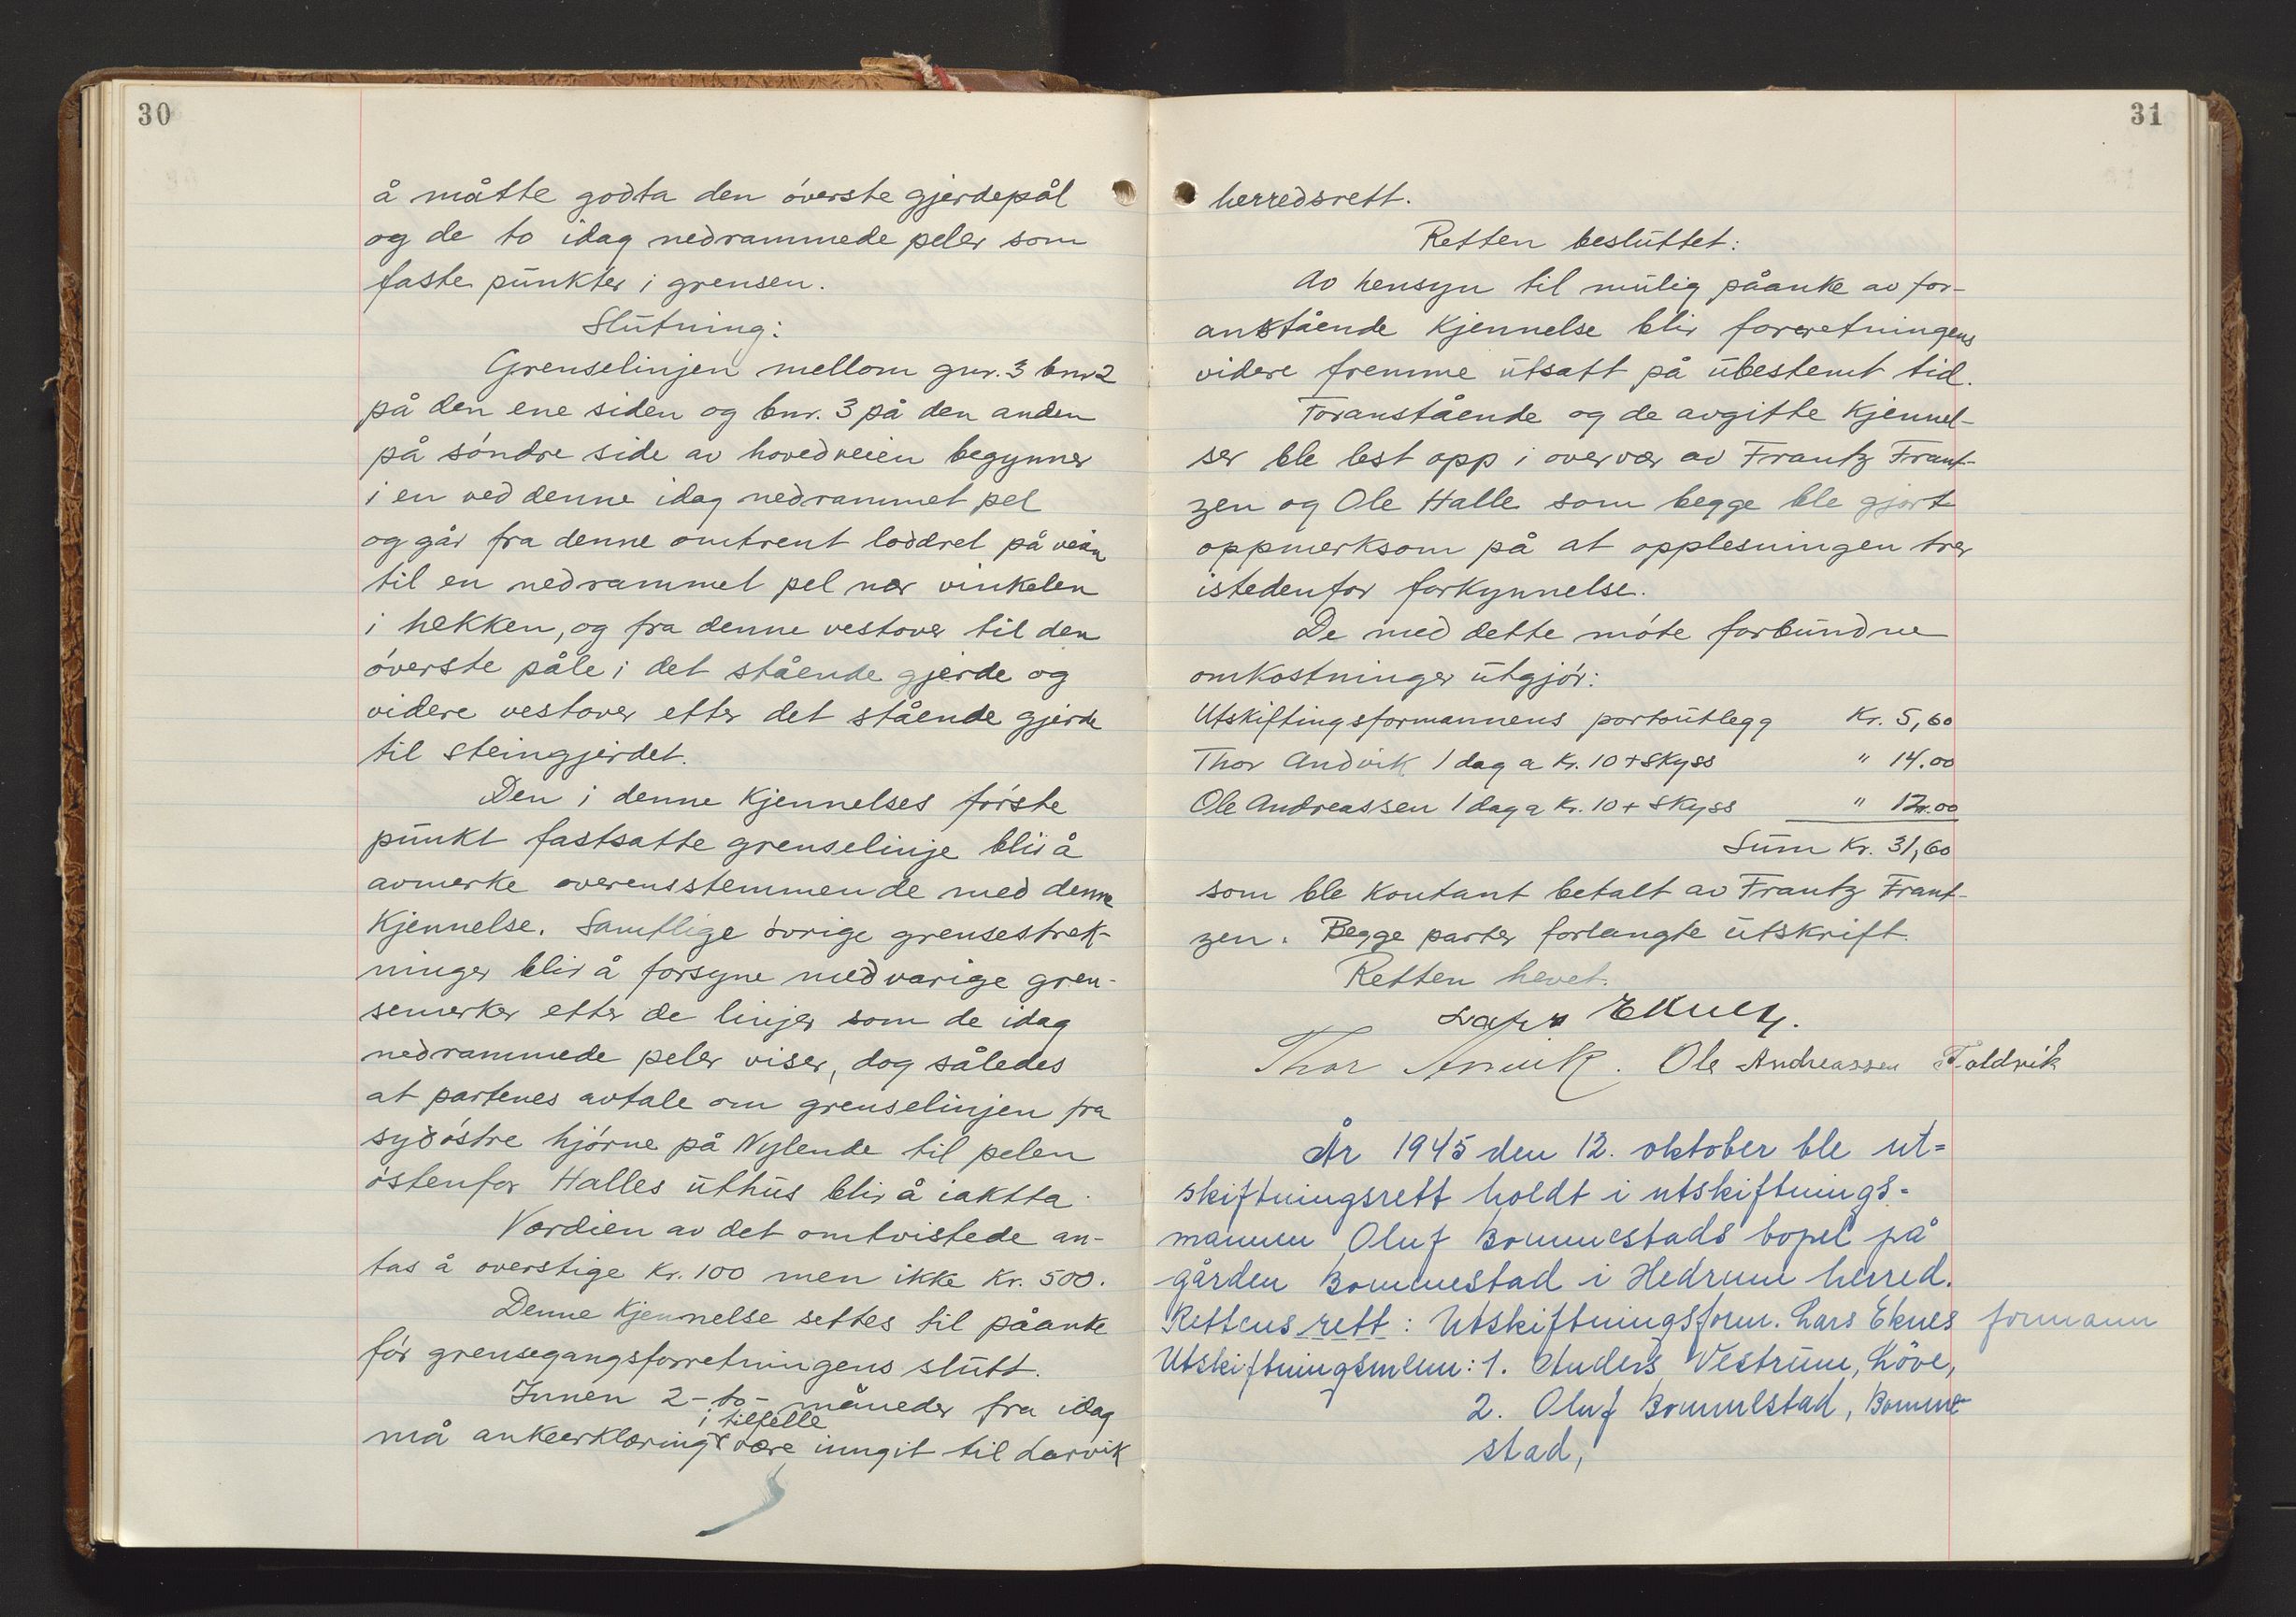 30
å måtte godta den överste gjerdepål
og de to idag nedrammede peler som
faste punkter i grensen.
Slutning:
Grenselinjen mellom gnr. 3 bnr 2
på den ene siden og bnr. 3 på den anden
på söndre side av hovedveien begynner
i en ved denne idag nedrammet pel
og går fra denne omtrent loddret på veien
til en nedrammet pel nær vinkelen
i hekken, og fra denne vestover til den
överste påle i det stående gjerde og
videre vestover efter det stående gjerde
til steingjerdet.
Den i denne Kjennelses förste
punkt fastsatte grenselinje blir å
avmerke overensstemmende med denne
Kjennelse. Samtlige övrige grensestrek-
ninger blir å forsyne med varige gren-
semerker efter de linjer som de idag
nedrammede peler viser, dog således
at partenes avtale om grenselinjen fra
sydöstre hjörne på Nylende til pelen
östenfor Halles uthus blir å iaktta.
Værdien av det omtvistede an-
tas å overstige Kr. 100 men ikke Kr. 500.
Denne Kjennelse settes til påanke
för grensegangsforretningens slutt.
Innen 2 - to - måneder fra idag
i tilfelle
må ankeerklæring være inngit til Larvik
31
herredsrett.
Retten besluttet:
Av hensyn til mulig påanke av for-
anstående Kjennelse blir forretningens
videre fremme utsatt på ubestemt tid.
Foranstående og de avgitte Kjennel-
ser ble lest opp i overvær av Frantz Frant-
zen og Ole Halle som begge ble gjort
oppmerksom på at opplesningen trer
istedenfor forkynnelse.
De med dette möte forbundne
omkostninger utgjör:
Utskiftingsformannens portoutlegg Kr. 5,60
Thor Andvik 1 dag a Kr. 10 + Skyss " 14.00
Ole Andreassen 1 dag a Kr. 10 + Skyss " 12.00
Sum Kr. 31,60
som ble Kontant betalt av Frantz Frant-
zen. Begge parter forlangte utskrift.
Retten hevet.
Lars Eknes.
Thor Anvik. Ole Andreassen Foldvik
År 1945 den 12. oktober ble ut=
skiftningsrett holdt i utskiftnings=
mannen Oluf Bommestads bopel på
gården Bommestad i Hedrum herred.
Rettens rett: Utskiftningsform. Lars Eknes formann
Utskiftningsmenn: 1. Anders Vestrum, Löve,
2. Oluf Bommestad, Bomme-
stad,